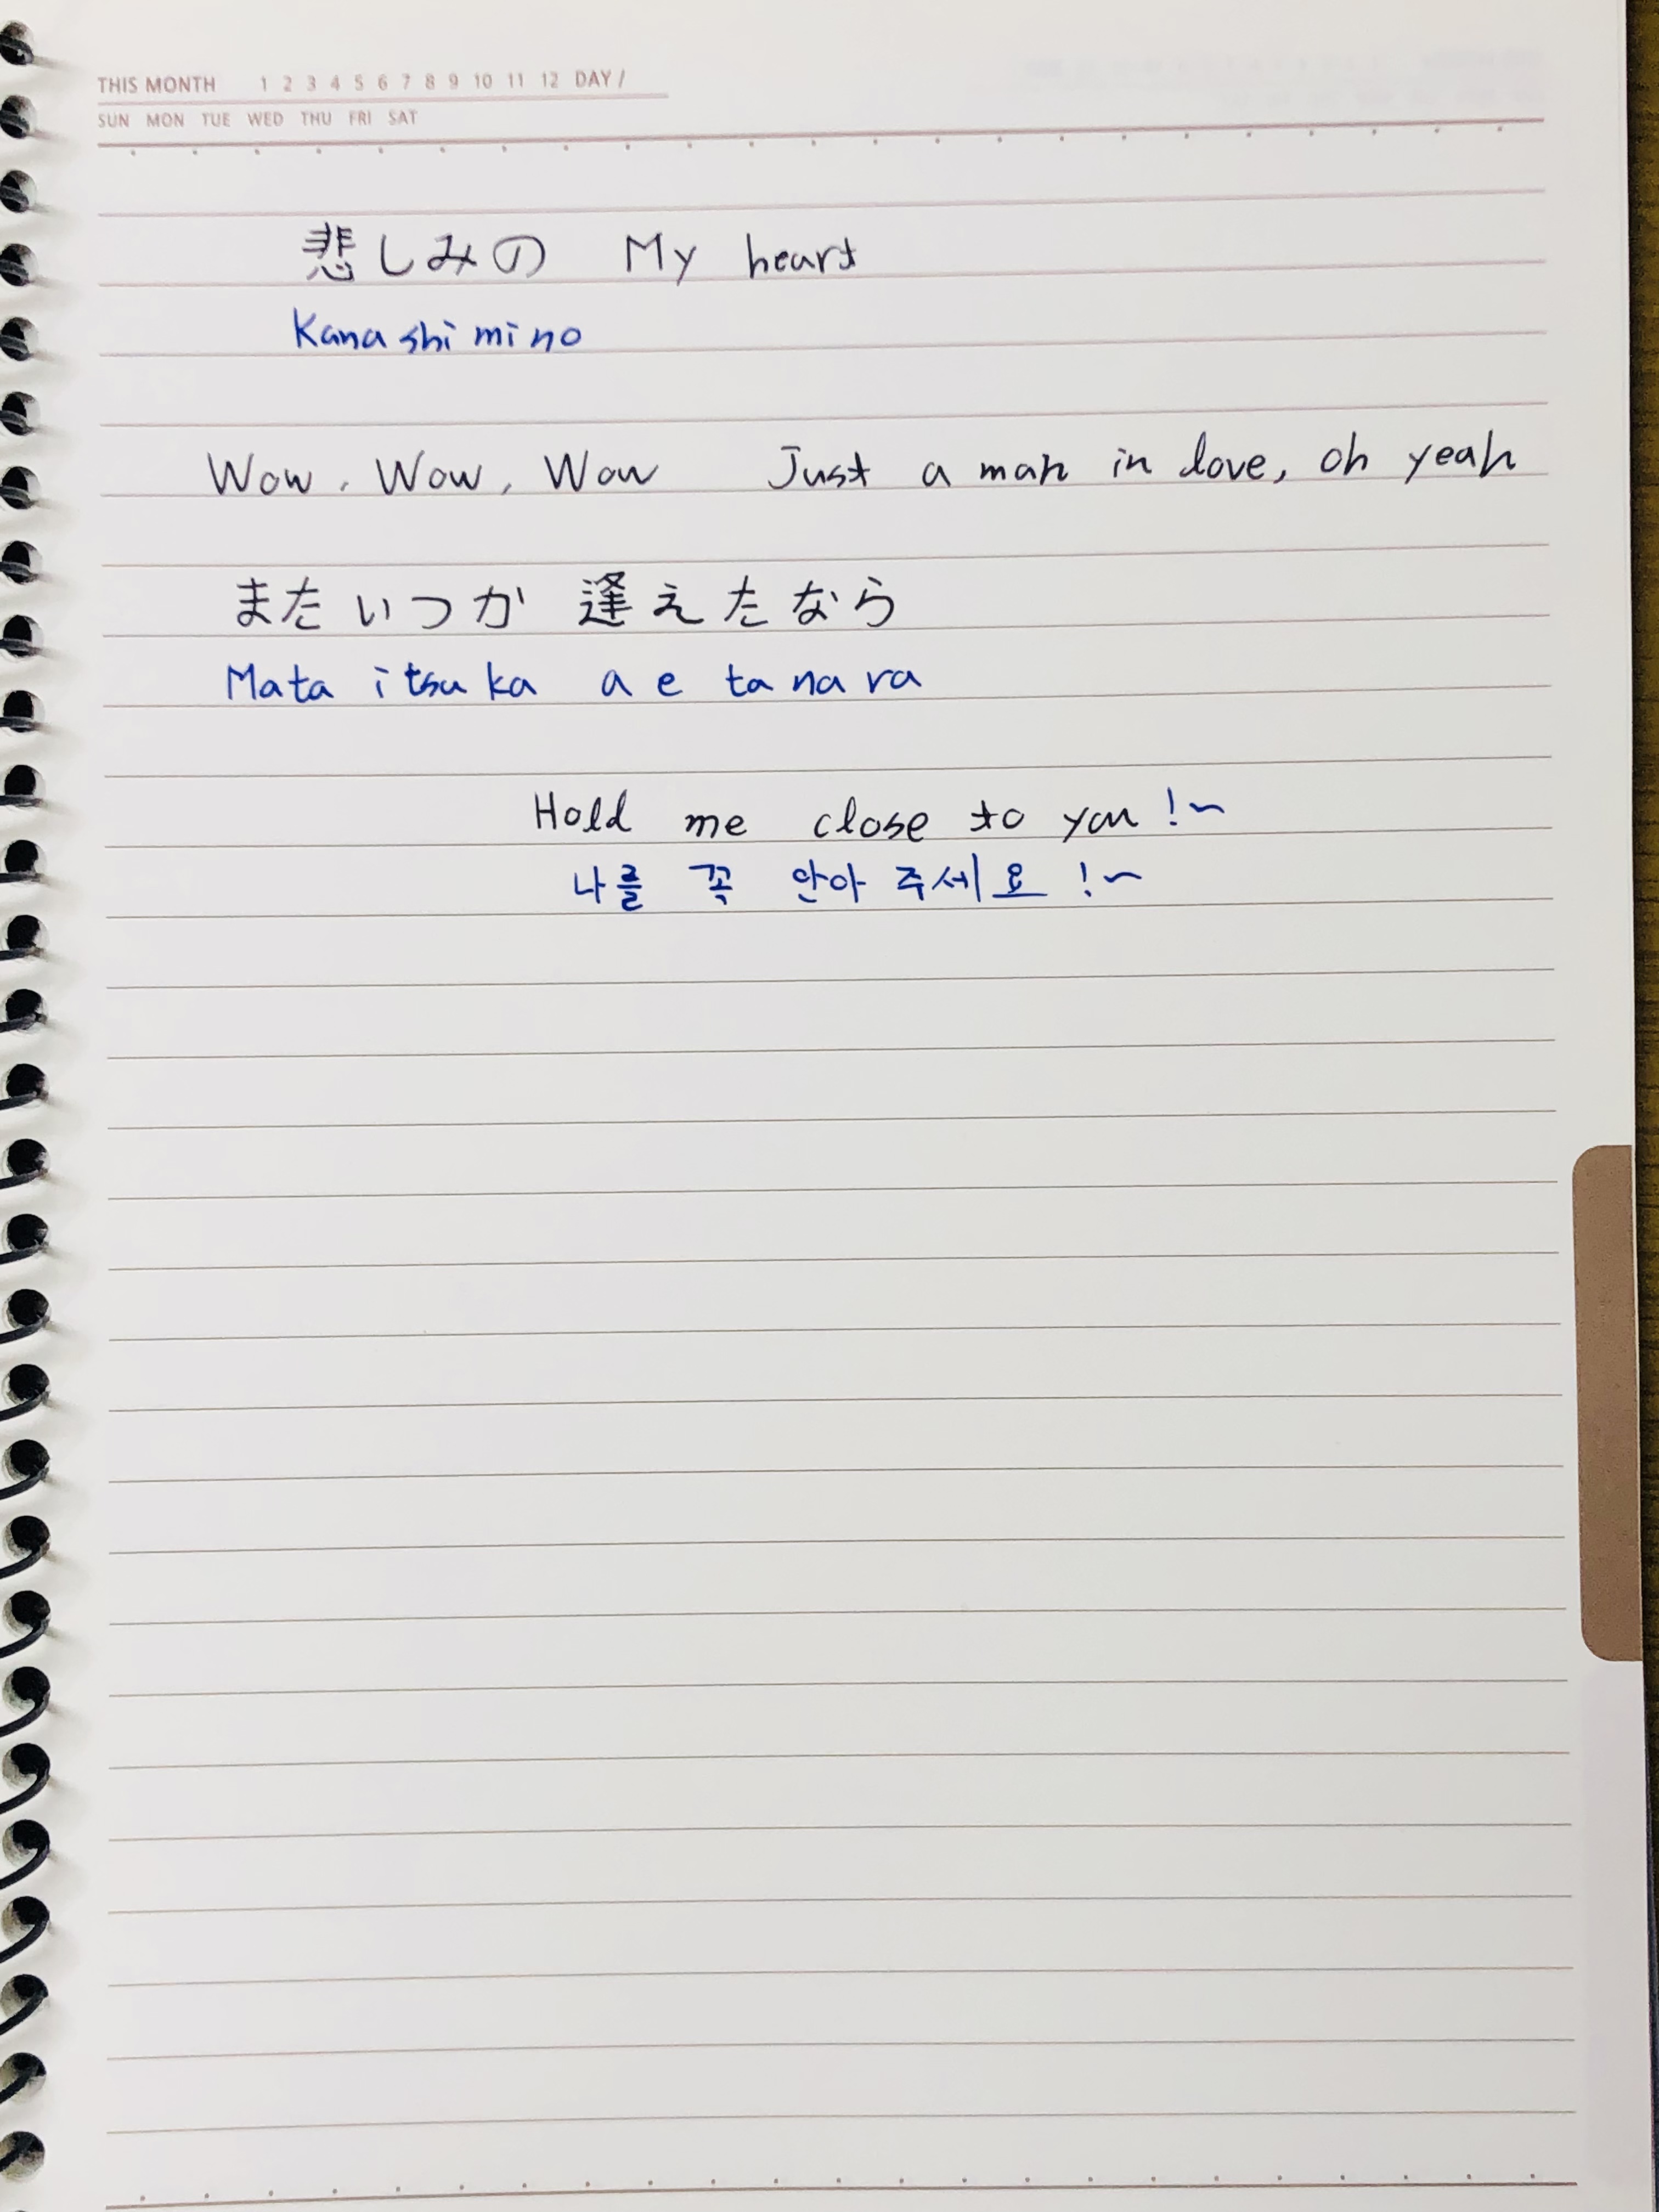 THIS MONTH 1 2 3 4 5 6 7 8 9 10 11 12 DAY /
SUN MON TUE WED THU FRI SAT
悲しみの My heart
Kanashimino
Wow, Wow, Wow Just a man in love, oh yeah
またいつか 逢えたなら
Mata itsuka a e ta na ra
Hold me close to you!~
나를 꼭 안아 주세요!~